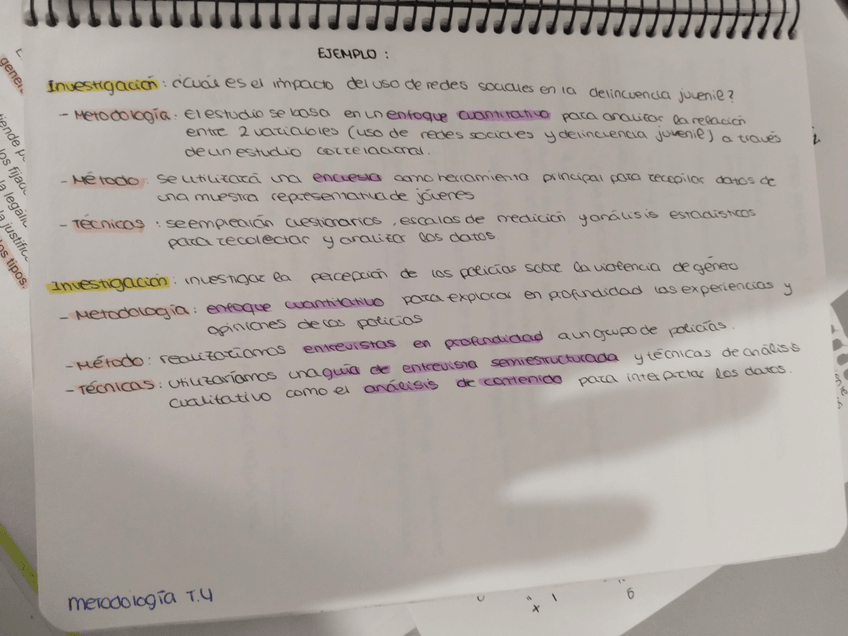 EJEMPLO :
Investigación : ¿Cuál es el impacto del uso de redes sociales en la delincuencia juvenil?
- Metodología : el estudio se basa en un enfoque cuantitativo para analizar la relación
entre 2 variables (uso de redes sociales y delincuencia juvenil) a través
de un estudio correlacional.
- Método : se utilizará una encuesta como herramienta principal para recopilar datos de
una muestra representativa de jóvenes
- Técnicas : se emplearán cuestionarios, escalas de medición y análisis estadísticos
para recolectar y analizar los datos.
Investigación : investigar la percepción de los policías sobre la violencia de género
- Metodología : enfoque cuantitativo para explorar en profundidad las experiencias y
opiniones de los policías
- Método : realizaríamos entrevistas en profundidad a un grupo de policías.
- Técnicas : utilizaríamos una guía de entrevista semiestructurada y técnicas de análisis
cualitativo como el análisis de contenido para interpretar los datos.
metodología T.4